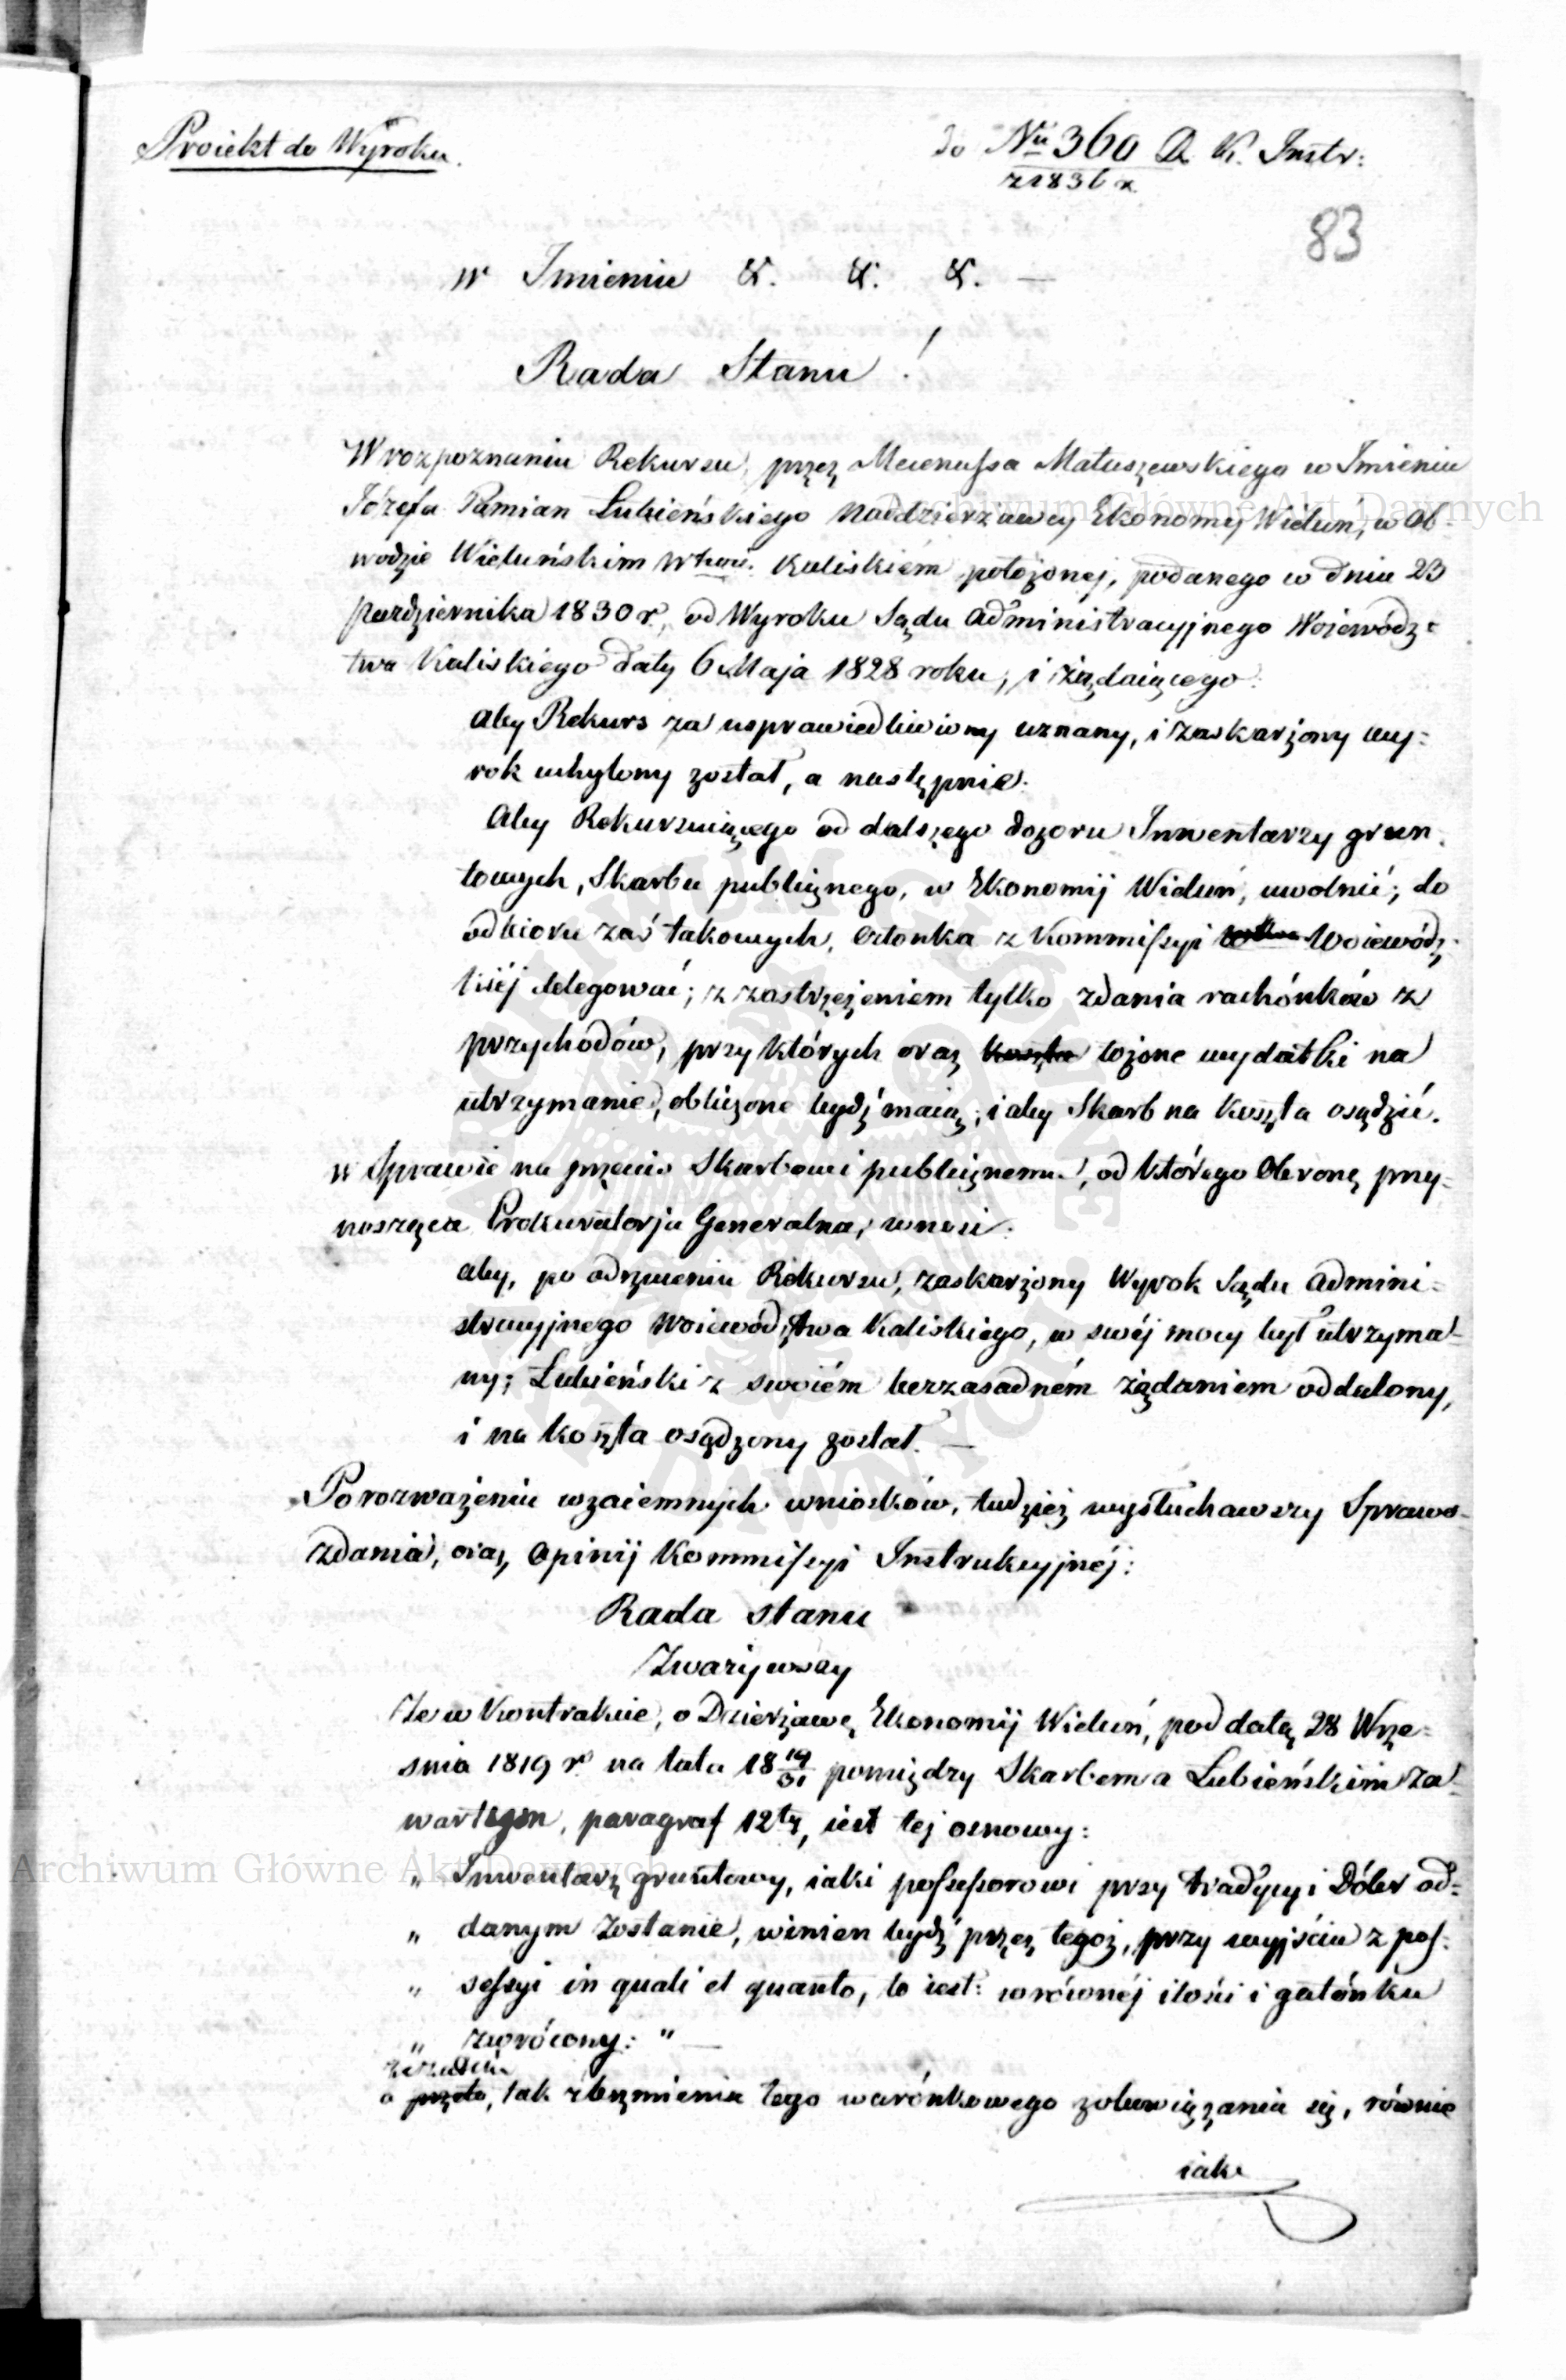 Proiekt do Wyroku.
do Nru 360 D. K. Instr:
z 1836 r.
83
w Imieniu &. &. &. —
Rada Stanu!
W rozpoznaniu Rekursu, przez Mecenassa Matuszewskiego w Imieniu
Józefa Pomian Łubieńskiego Naddzierżawcy Ekonomij Wieluń, w Ob-
wodzie Wieluńskim Wtwie. Kaliskiém położonej, podanego w dniu 23
Października 1830 r., od Wyroku Sądu Administracyjnego Wojewódz=
twa Kaliskiego daty 6 Maja 1828 roku, i żądaiącego:
aby Rekurs za usprawiedliwiony uznany, i zaskarżony wy=
rok uchylony został, a następnie:
Aby Rekurruiącego od dalszego dozoru Inwentarzy grun-
towych, Skarbu publicznego, w Ekonomij Wieluń, uwolnić; do
odbioru zaś takowych, Członka z Kommissyi Woiewódz-
kiéj delegować; z zastrzeżeniem tylko zdania rachónków z
przychodów, przy których oraz koszta łożone wydatki na
utrzymanie, obliczone bydź maią; i aby Skarb na koszta osądzić.
w Sprawie na przeciw Skarbowi publicznemu, od którego Obronę przy=
nosząca Prokuratorja Generalna, wnosi:
aby, po odrzuceniu Rekursu, zaskarżony Wyrok Sądu Admini=
stracyjnego Woiewództwa Kaliskiego, w swéj mocy był utrzyma-
ny; Łubieński z swoiém bezzasadném żądaniem oddalony,
i na koszta osądzony został. —
Po rozważeniu wzaiemnych wniosków, tudzież wysłuchawszy Sprawo-
zdania, oraz Opinij Kommissyi Instrukcyjnéj:
Rada Stanu
Zważywszy
Że w Kontrakcie, o Dzierżawę Ekonomij Wieluń, pod datą 28 Wrze=
snia 1819 r. na lata 18 19/31 pomiędzy Skarbem a Łubieńskim za-
wartym, paragraf 12ty, iest tej osnowy:
„ Inwentarz gruntowy, iaki possessorowi przy tradycyi Dóbr od=
„ danym zostanie, winien bydź przez tegoż, przy wyjściu z pos-
„ sessyi in quali et quanto, to iest: w równéj ilości i gatónku
„ zwrócony: " —
a przeto, tak z brzmienia tego warónkowego zobowiązania się, równie
iako